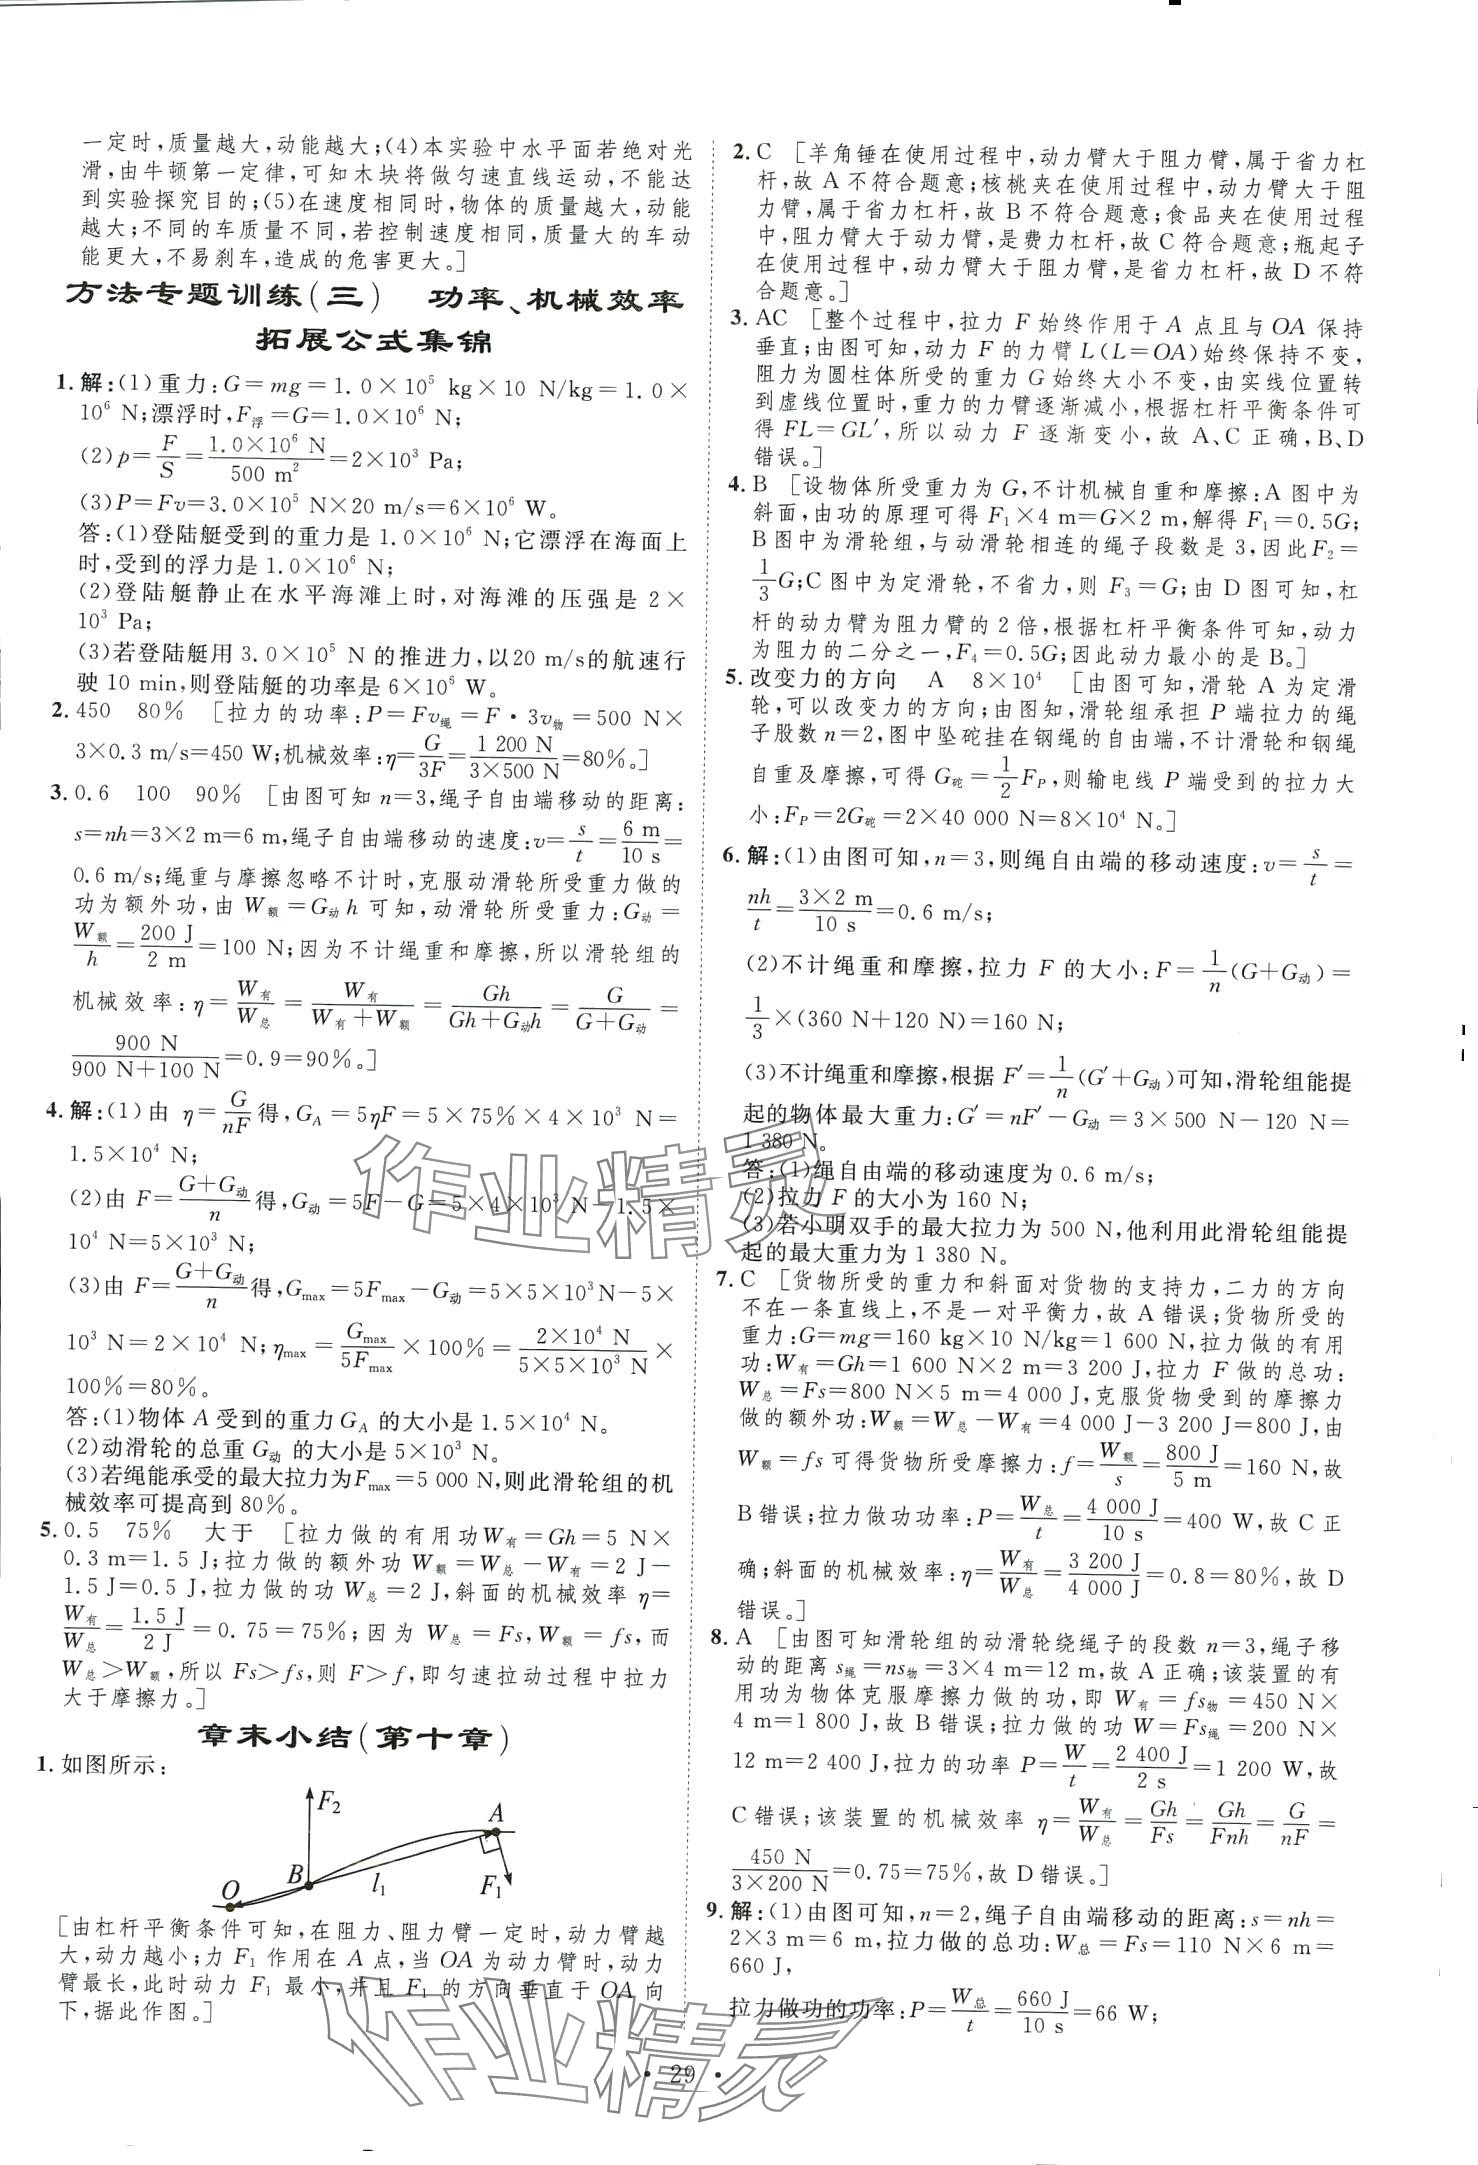 一定时,质量越大,动能越大;(4)本实验中水平面若绝对光
滑,由牛顿第一定律,可知木块将做匀速直线运动,不能达
到实验探究目的;(5)在速度相同时,物体的质量越大,动能
越大;不同的车质量不同,若控制速度相同,质量大的车动
能更大,不易刹车,造成的危害更大。]
方法专题训练(三) 功率、机械效率
拓展公式集锦
1. 解:(1)重力:G=mg=1.0×10⁵ kg×10 N/kg=1.0×
10⁶ N;漂浮时,F浮=G=1.0×10⁶ N;
(2)p=F/S=1.0×10⁶ N/500 m²=2×10³ Pa;
(3)P=Fv=3.0×10⁵ N×20 m/s=6×10⁶ W。
答:(1)登陆艇受到的重力是 1.0×10⁶ N;它漂浮在海面上
时,受到的浮力是 1.0×10⁶ N;
(2)登陆艇静止在水平海滩上时,对海滩的压强是 2×
10³ Pa;
(3)若登陆艇用 3.0×10⁵ N 的推进力,以20 m/s的航速行
驶 10 min,则登陆艇的功率是 6×10⁶ W。
2. 450 80% [拉力的功率:P=Fv绳=F·3v物=500 N×
3×0.3 m/s=450 W;机械效率:η=G/3F=1 200 N/3×500 N=80%。]
3. 0.6 100 90% [由图可知 n=3,绳子自由端移动的距离:
s=nh=3×2 m=6 m,绳子自由端移动的速度:v=s/t=6 m/10 s=
0.6 m/s;绳重与摩擦忽略不计时,克服动滑轮所受重力做的
功为额外功,由 W额=G动h 可知,动滑轮所受重力:G动=
W额/h=200 J/2 m=100 N;因为不计绳重和摩擦,所以滑轮组的
机械效率:η=W有/W总=W有/(W有+W额)=Gh/(Gh+G动h)=G/(G+G动)=
900 N/(900 N+100 N)=0.9=90%。]
4. 解:(1)由 η=G/nF得,G_A=5ηF=5×75%×4×10³ N=
1.5×10⁴ N;
(2)由 F=(G+G动)/n得,G动=5F-G=5×4×10³ N-1.5×
10⁴ N=5×10³ N;
(3)由 F=(G+G动)/n得,Gmax=5Fmax-G动=5×5×10³N-5×
10³ N=2×10⁴ N;ηmax=Gmax/5Fmax×100%=2×10⁴ N/5×5×10³ N×
100%=80%。
答:(1)物体 A 受到的重力G_A 的大小是 1.5×10⁴ N。
(2)动滑轮的总重 G动 的大小是 5×10³ N。
(3)若绳能承受的最大拉力为Fmax=5 000 N,则此滑轮组的机
械效率可提高到 80%。
5. 0.5 75% 大于 [拉力做的有用功W有=Gh=5 N×
0.3 m=1.5 J;拉力做的额外功 W额=W总-W有=2 J-
1.5 J=0.5 J,拉力做的功 W总=2 J,斜面的机械效率 η=
W有/W总=1.5 J/2 J=0.75=75%;因为 W总=Fs,W额=fs,而
W总>W额,所以 Fs>fs,则 F>f,即匀速拉动过程中拉力
大于摩擦力。]
章末小结(第十章)
1. 如图所示:
F₂
A
B
O
l₁
F₁
[由杠杆平衡条件可知,在阻力、阻力臂一定时,动力臂越
大,动力越小;力 F₁ 作用在 A 点,当 OA 为动力臂时,动力
臂最长,此时动力 F₁ 最小,并且 F₁ 的方向垂直于 OA 向
下,据此作图。]
2. C [羊角锤在使用过程中,动力臂大于阻力臂,属于省力杠
杆,故 A 不符合题意;核桃夹在使用过程中,动力臂大于阻
力臂,属于省力杠杆,故 B 不符合题意;食品夹在使用过程
中,阻力臂大于动力臂,是费力杠杆,故 C 符合题意;瓶起子
在使用过程中,动力臂大于阻力臂,是省力杠杆,故 D 不符
合题意。]
3. AC [整个过程中,拉力 F 始终作用于 A 点且与 OA 保持
垂直;由图可知,动力 F 的力臂 L(L=OA)始终保持不变,
阻力为圆柱体所受的重力 G 始终大小不变,由实线位置转
到虚线位置时,重力的力臂逐渐减小,根据杠杆平衡条件可
得 FL=GL′,所以动力 F 逐渐变小,故 A、C 正确,B、D
错误。]
4. B [设物体所受重力为 G,不计机械自重和摩擦:A 图中为
斜面,由功的原理可得 F₁×4 m=G×2 m,解得 F₁=0.5G;
B 图中为滑轮组,与动滑轮相连的绳子段数是 3,因此 F₂=
1/3G;C 图中为定滑轮,不省力,则 F₃=G;由 D 图可知,杠
杆的动力臂为阻力臂的 2 倍,根据杠杆平衡条件可知,动力
为阻力的二分之一,F₄=0.5G;因此动力最小的是 B。]
5. 改变力的方向 A 8×10⁴ [由图可知,滑轮 A 为定滑
轮,可以改变力的方向;由图知,滑轮组承担 P 端拉力的绳
子股数 n=2,图中坠砣挂在钢绳的自由端,不计滑轮和钢绳
自重及摩擦,可得 G砣=1/2F_P,则输电线 P 端受到的拉力大
小:F_P=2G砣=2×40 000 N=8×10⁴ N。]
6. 解:(1)由图可知,n=3,则绳自由端的移动速度:v=s/t=
nh/t=3×2 m/10 s=0.6 m/s;
(2)不计绳重和摩擦,拉力 F 的大小:F=1/n(G+G动)=
1/3×(360 N+120 N)=160 N;
(3)不计绳重和摩擦,根据 F′=1/n(G′+G动)可知,滑轮组能提
起的物体最大重力:G′=nF′-G动=3×500 N-120 N=
1 380 N。
答:(1)绳自由端的移动速度为 0.6 m/s;
(2)拉力 F 的大小为 160 N;
(3)若小明双手的最大拉力为 500 N,他利用此滑轮组能提
起的最大重力为 1 380 N。
7. C [货物所受的重力和斜面对货物的支持力,二力的方向
不在一条直线上,不是一对平衡力,故 A 错误;货物所受的
重力:G=mg=160 kg×10 N/kg=1 600 N,拉力做的有用
功:W有=Gh=1 600 N×2 m=3 200 J,拉力 F 做的总功:
W总=Fs=800 N×5 m=4 000 J,克服货物受到的摩擦力
做的额外功:W额=W总-W有=4 000 J-3 200 J=800 J,由
W额=fs 可得货物所受摩擦力:f=W额/s=800 J/5 m=160 N,故
B 错误;拉力做功功率:P=W总/t=4 000 J/10 s=400 W,故 C 正
确;斜面的机械效率:η=W有/W总=3 200 J/4 000 J=0.8=80%,故 D
错误。]
8. A [由图可知滑轮组的动滑轮绕绳子的段数 n=3,绳子移
动的距离 s绳=ns物=3×4 m=12 m,故 A 正确;该装置的有
用功为物体克服摩擦力做的功,即 W有=fs物=450 N×
4 m=1 800 J,故 B 错误;拉力做的功 W=Fs绳=200 N×
12 m=2 400 J,拉力的功率 P=W/t=2 400 J/2 s=1 200 W,故
C 错误;该装置的机械效率 η=W有/W总=Gh/Fs=Gh/Fnh=G/nF=
450 N/3×200 N=0.75=75%,故 D 错误。]
9. 解:(1)由图可知,n=2,绳子自由端移动的距离:s=nh=
2×3 m=6 m,拉力做的总功:W总=Fs=110 N×6 m=
660 J,
拉力做功的功率:P=W总/t=660 J/10 s=66 W;
作业精灵
作业精灵
· 29 ·